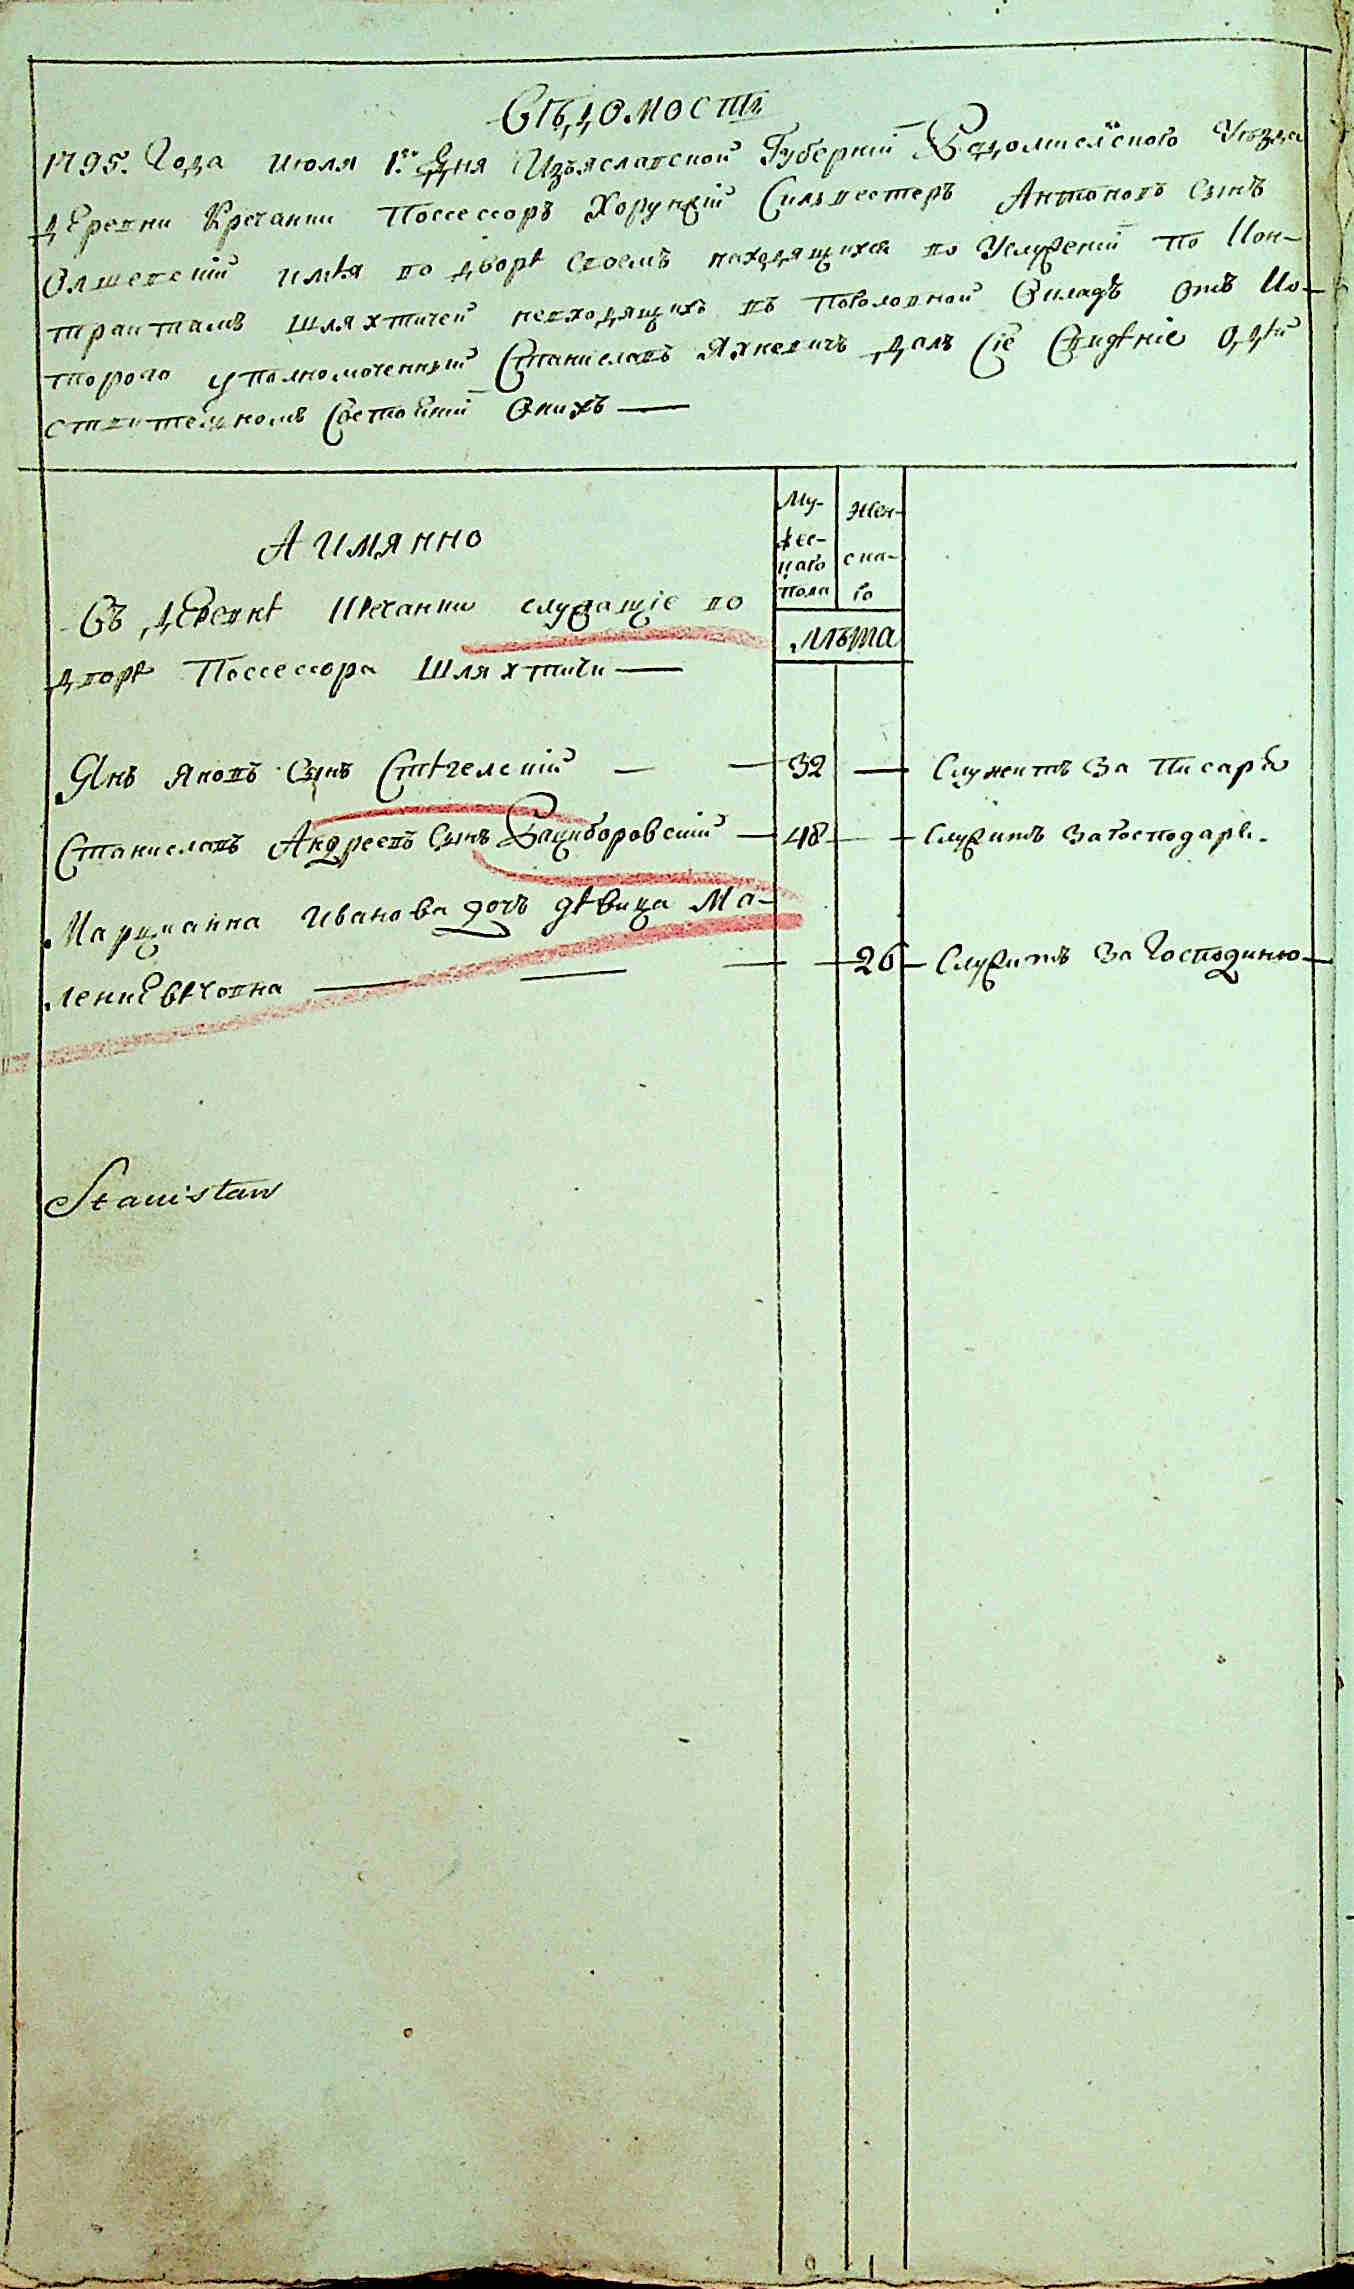 Вѣдомость
1795. Года Июля 1го Дня Изъяславской Губерніи Радомисльского Уезда
деревни Кречании Поссессоръ Хорунжій Сильвестеръ Антоновъ Сынъ
Олшевскій имѣя во дворѣ своемъ находящихся во Услуженіи по Кон-
трактамъ шляхтичей невходящихъ въ поголовной Окладъ отъ Ко-
торого уполномоченный Станиславъ Яхневичъ далъ Сіе Свидѣніе о дѣй
ствительномъ Состояніи Оныхъ —
А имянно
Въ деревнѣ Кречании служащіе во
дворѣ Поссессора шляхтичи —
Му-
жес-
каго
пола
Жен-
ска-
го
лѣта
Янъ Яковъ Сынъ Стѣчелскій — — 32 — Служитъ За Писаря
Станиславъ Андреевъ Сынъ Рациборовскій — 48 — Служитъ За Господаря.
Марцианна Иванова дочъ дѣвица Ма-
лениевѣчовна — — — 26 Служитъ За Господиню
Stanisław